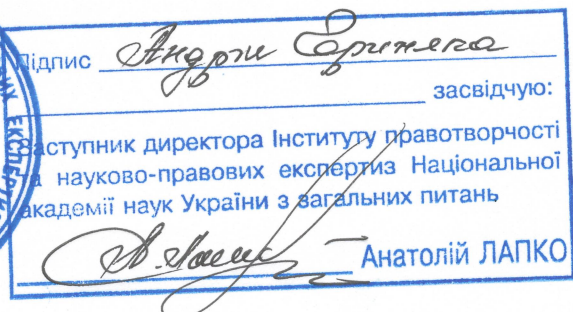 Підпис Андрія
засвідчую:
Заступник директора Інституту правотворчості
та науково-правових експертиз Національної
академії наук України з загальних питань
Анатолій ЛАПКО
ЕКСПЕРТИ